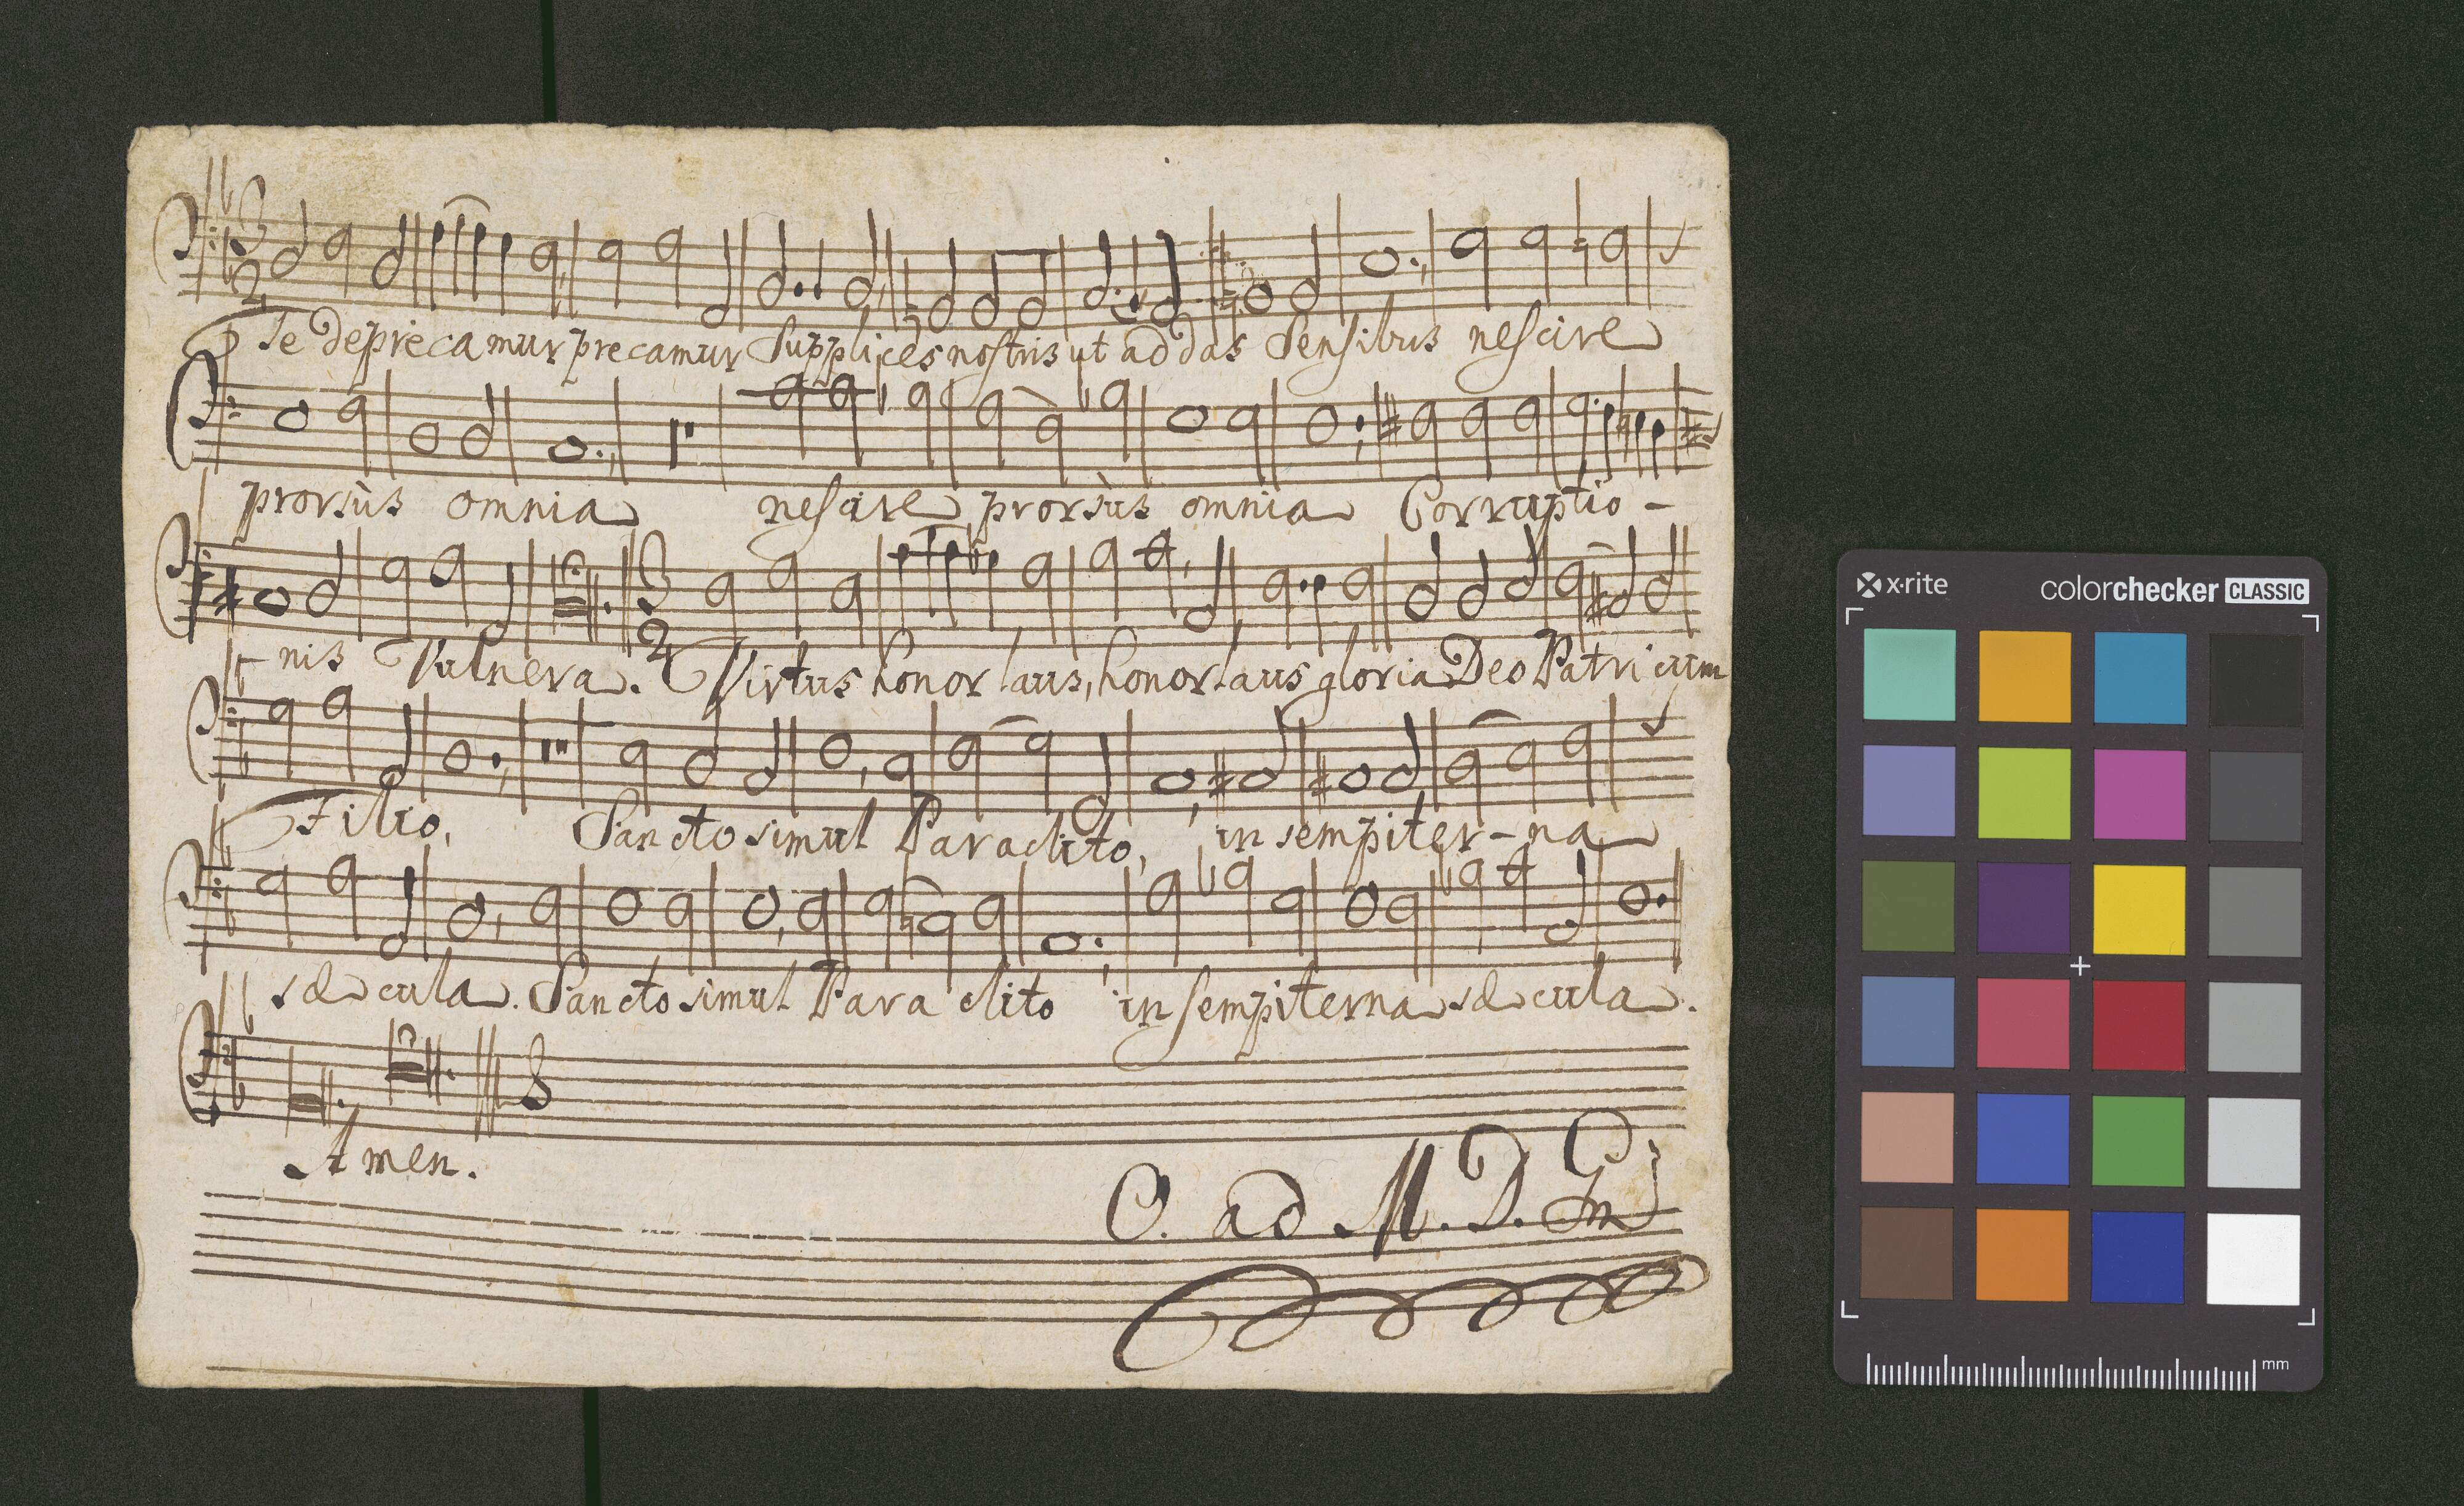 Te deprecamur precamur Supplices nostris ut addas Sensibus nescire
prorsùs omnia nescire prorsùs omnia Corruptio -
nis Vulnera. Virtus honor laus, honor laus gloria Deo Patri cum
Filio, Sancto simul Paraclito, in sempiter-na
sæcula. Sancto simul Paraclito in sempiterna sæcula.
Amen.
O. ad M. D. G.
x·rite colorchecker CLASSIC
mm